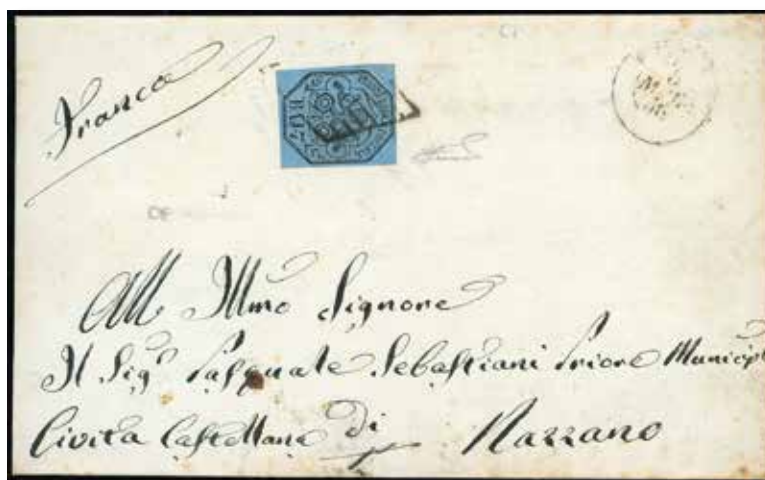 Franca
All Illmo Signore
Il Sigr Pasquale Sebastiani Priore Municip
Civita Castellana di Nazzano